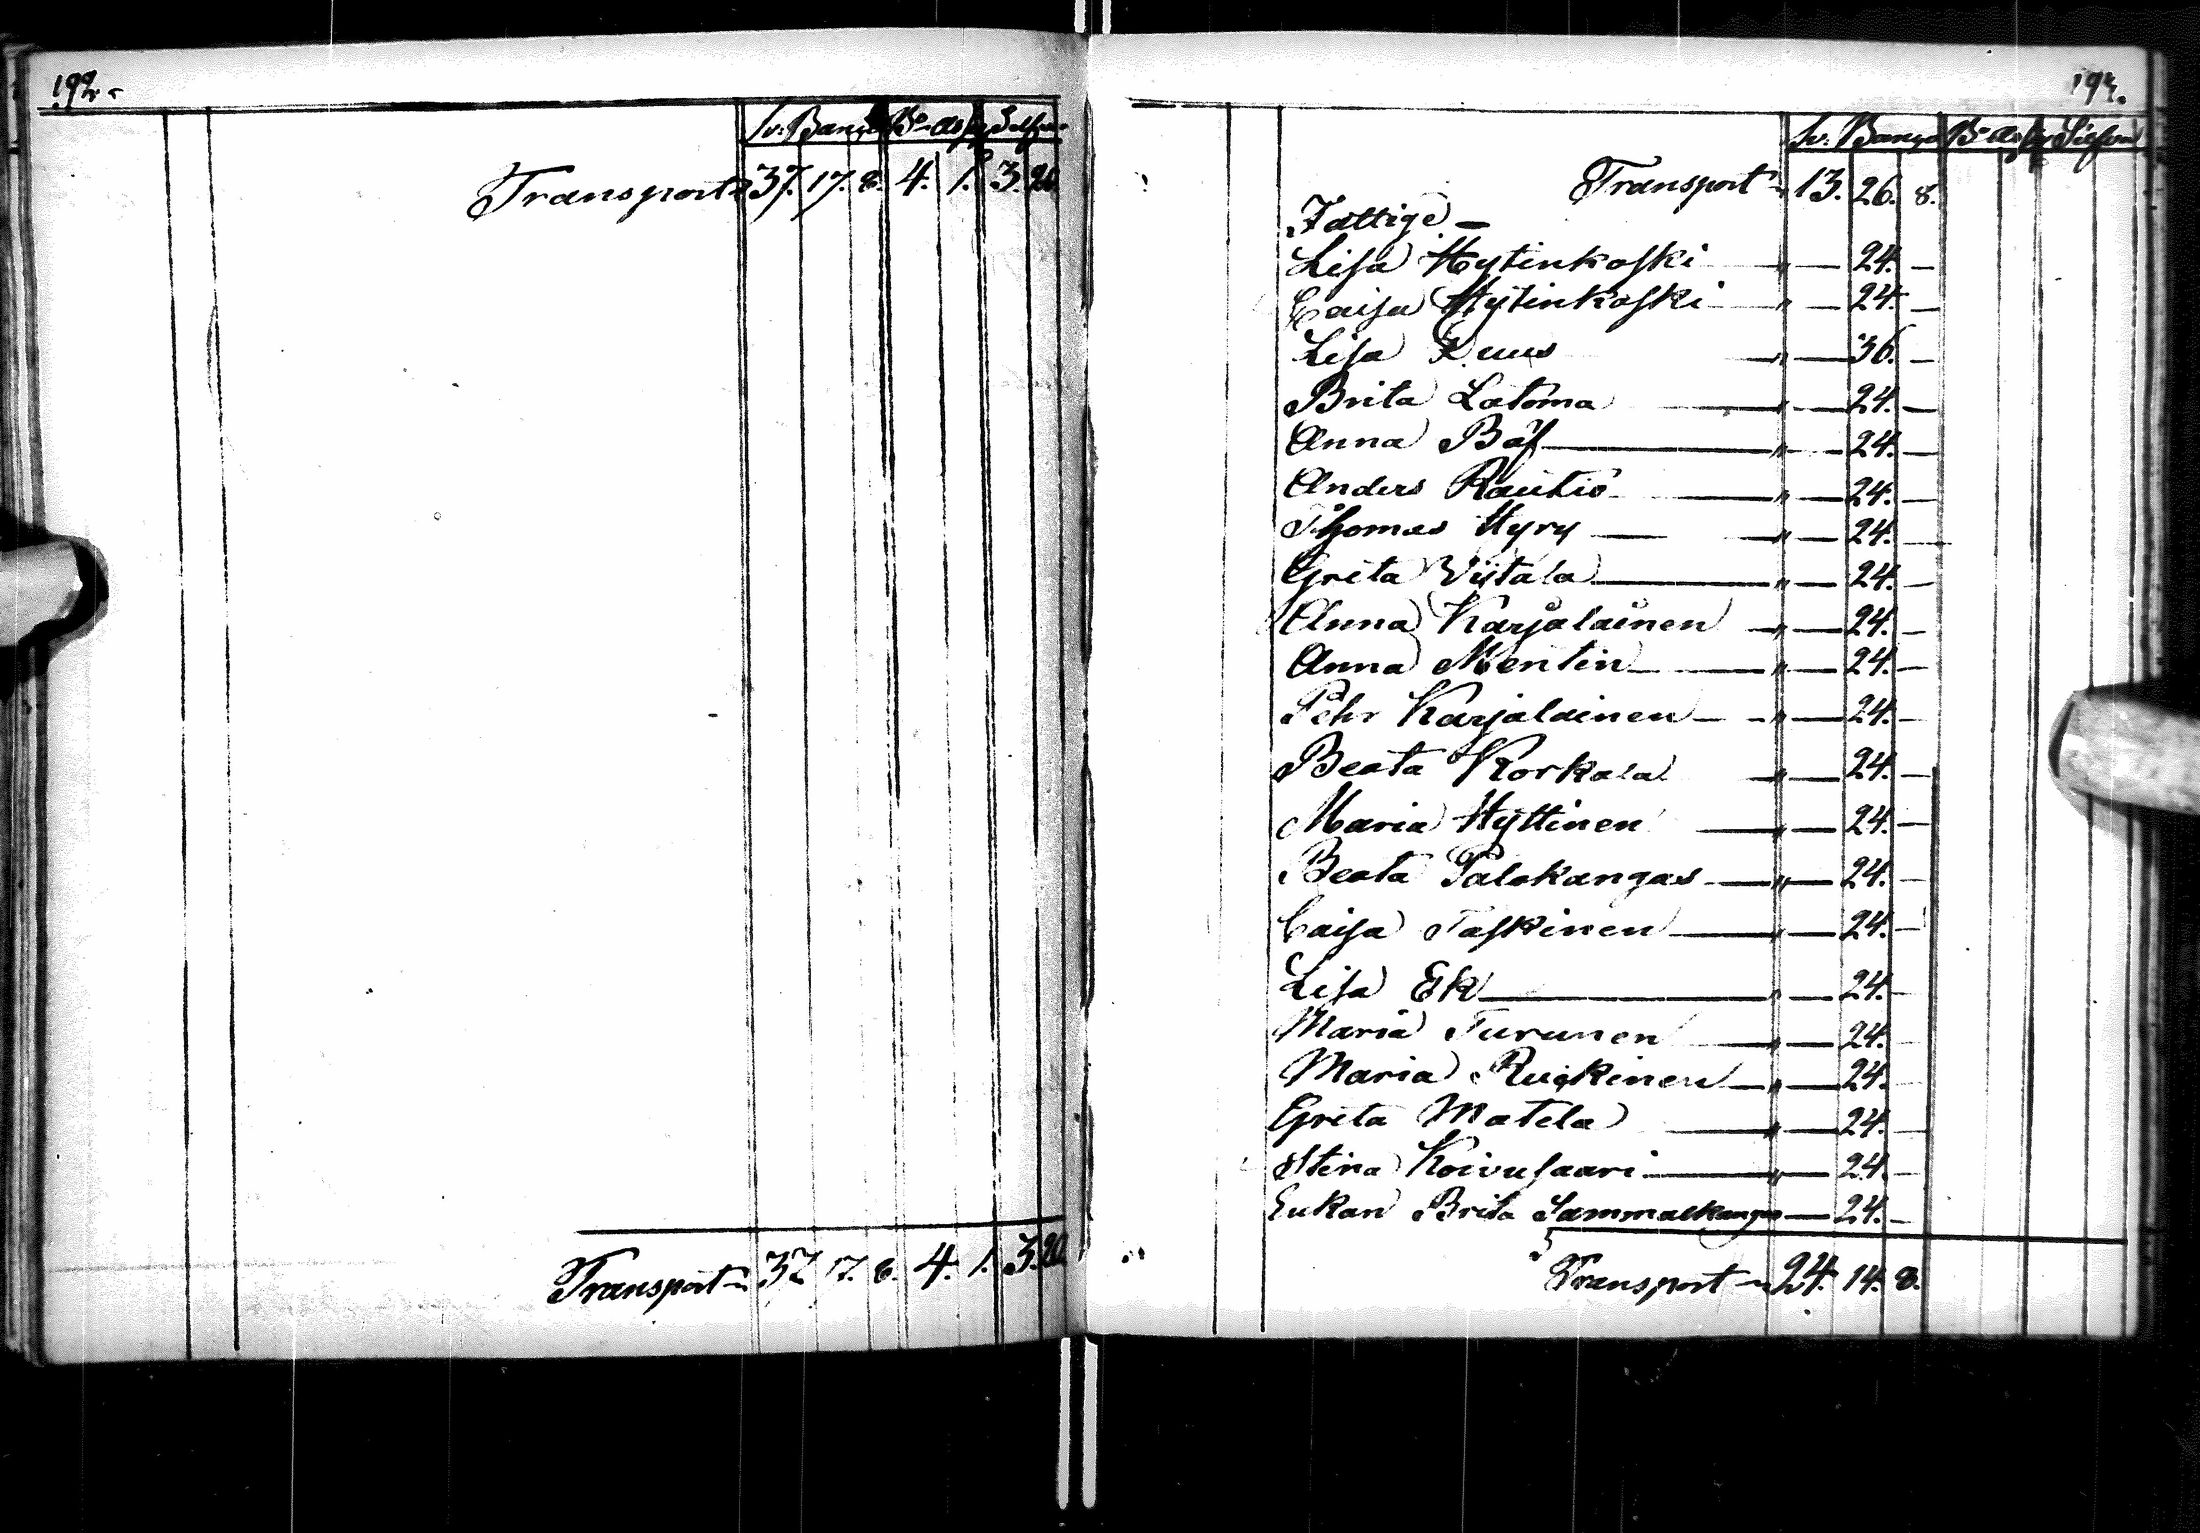 192.
Sv: Banco Bo Ass Silfver
Transport 37. 17. 8. 4. 1. 3. 20.
Transport 37 17. 8. 4. 1. 3. 20.
Sv: Banco Bo Ass Silfver
Transport 13. 26. 8.
Fattige —
Lisa Hytinkoski " — 24. —
Caisa Hytinkoski " — 24. —
Lisa " — 36. —
Brita Latoma " — 24. —
Anna Båf " — 24. —
Anders Rautio " — 24. —
Thomas Hyry " — 24. —
Greta Viitala " — 24. —
Anna Karjalainen " — 24. —
Anna Mentin " — 24. —
Pehr Karjalainen " — 24. —
Beata Korkala " — 24. —
Maria Hyttinen " — 24. —
Beata Palokangas " — 24. —
Caisa Taskinen " — 24. —
Lisa Ek " — 24. —
Maria Turunen " — 24. —
Maria Ruikinen " — 24.
Greta Matela " — 24. —
Stina Koivusaari " — 24. —
Enkan Brita Sammalkangas — 24. —
Transport 24. 14. 8.